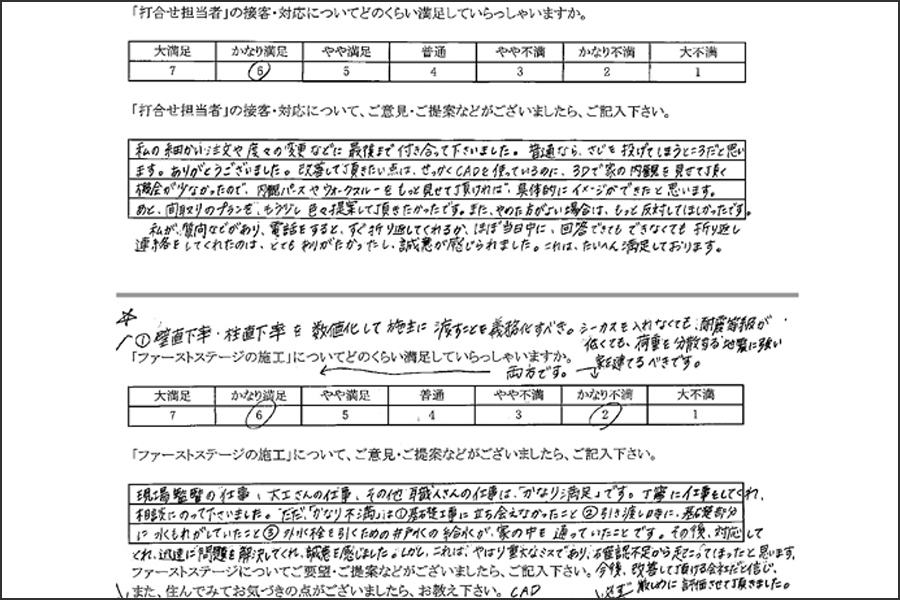 「打合せ担当者」の接客・対応についてどのくらい満足していらっしゃいますか。
大満足 かなり満足 やや満足 普通 やや不満 かなり不満 大不満
7 6 5 4 3 2 1
「打合せ担当者」の接客・対応について、ご意見・ご提案などがございましたら、ご記入下さい。
私の細かい注文や度々の変更などに最後まで付き合って下さいました。普通なら、さじを投げてしまうところだと思い
ます。ありがとうございました。改善して頂きたい点は、せっかくCADを使っているのに、3Dで家の内観を見せて頂く
機会が少なかったので、内観パースやウォークスルーをもっと見せて頂ければ、具体的にイメージができたと思います。
あと、間取りのプランを、もう少し色々提案して頂きたかったです。また、やめた方がよい場合は、もっと反対してほしかったです。
私が、質問などがあり、電話をすると、すぐ折り返してくれるか、ほぼ当日中に、回答できてもできなくても折り返し
連絡をしてくれたのは、とてもありがたかったし、誠意が感じられました。これは、たいへん満足しております。
①壁直下率・柱直下率を数値化して施主に渡すことを義務化すべき。シーカスを入れなくても、耐震等級が
低くても、荷重を分散する地震に強い
家を建てるべきです。
「ファーストステージの施工」についてどのくらい満足していらっしゃいますか。
両方です。
大満足 かなり満足 やや満足 普通 やや不満 かなり不満 大不満
7 6 5 4 3 2 1
「ファーストステージの施工」について、ご意見・ご提案などがございましたら、ご記入下さい。
現場監督の仕事、大工さんの仕事、その他職人さんの仕事は、「かなり満足」です。丁寧に仕事をしてくれ、
相談にのって下さいました。ただ、「かなり不満」は①基礎工事に立ち会えなかったこと②引き渡しの時に、基礎部分
に水もれがしていたこと③外水栓を引くための井戸水の給水が、家の中を通っていたことです。その後、対応して
くれ、迅速に問題を解決してくれ、誠意を感じました。しかし、これは、やはり重大なミスであり、確認不足から起こってしまったと思います。
ファーストステージについてご要望・ご提案などがございましたら、ご記入下さい。今後、改善して頂ける会社だと信じ、
また、住んでみてお気づきの点がございましたら、お教え下さい。CAD 評価させて頂きました。